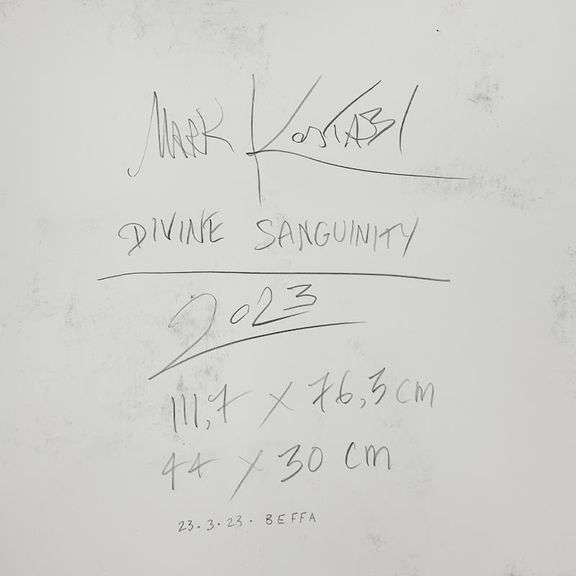 MARK KOSTABI
DIVINE SANGUINITY
2023
111,7 X 76,3 cm
44 X 30 cm
23.3.23. BEFFA